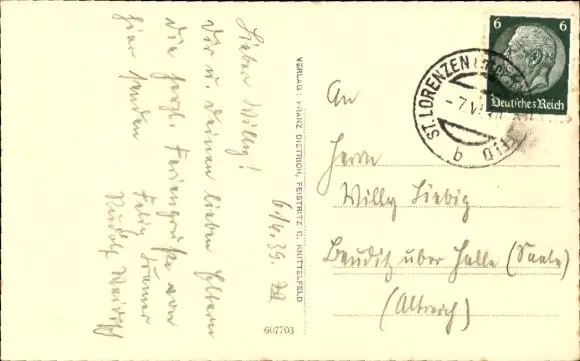 Lieber Willy!
Dir u. Deinen lieben Eltern
die herzl. Feriengrüße von
hier senden
Felix
Rudolf
6.
39.
VERLAG: FRANZ DIETRICH, FEISTRITZ B. KNITTELFELD
607703
6 6
Deutsches Reich
ST. LORENZEN
- 7. VI
b
An
Herrn
Willy Liebig
Beuditz über Halle (Saale)
(Altreich)